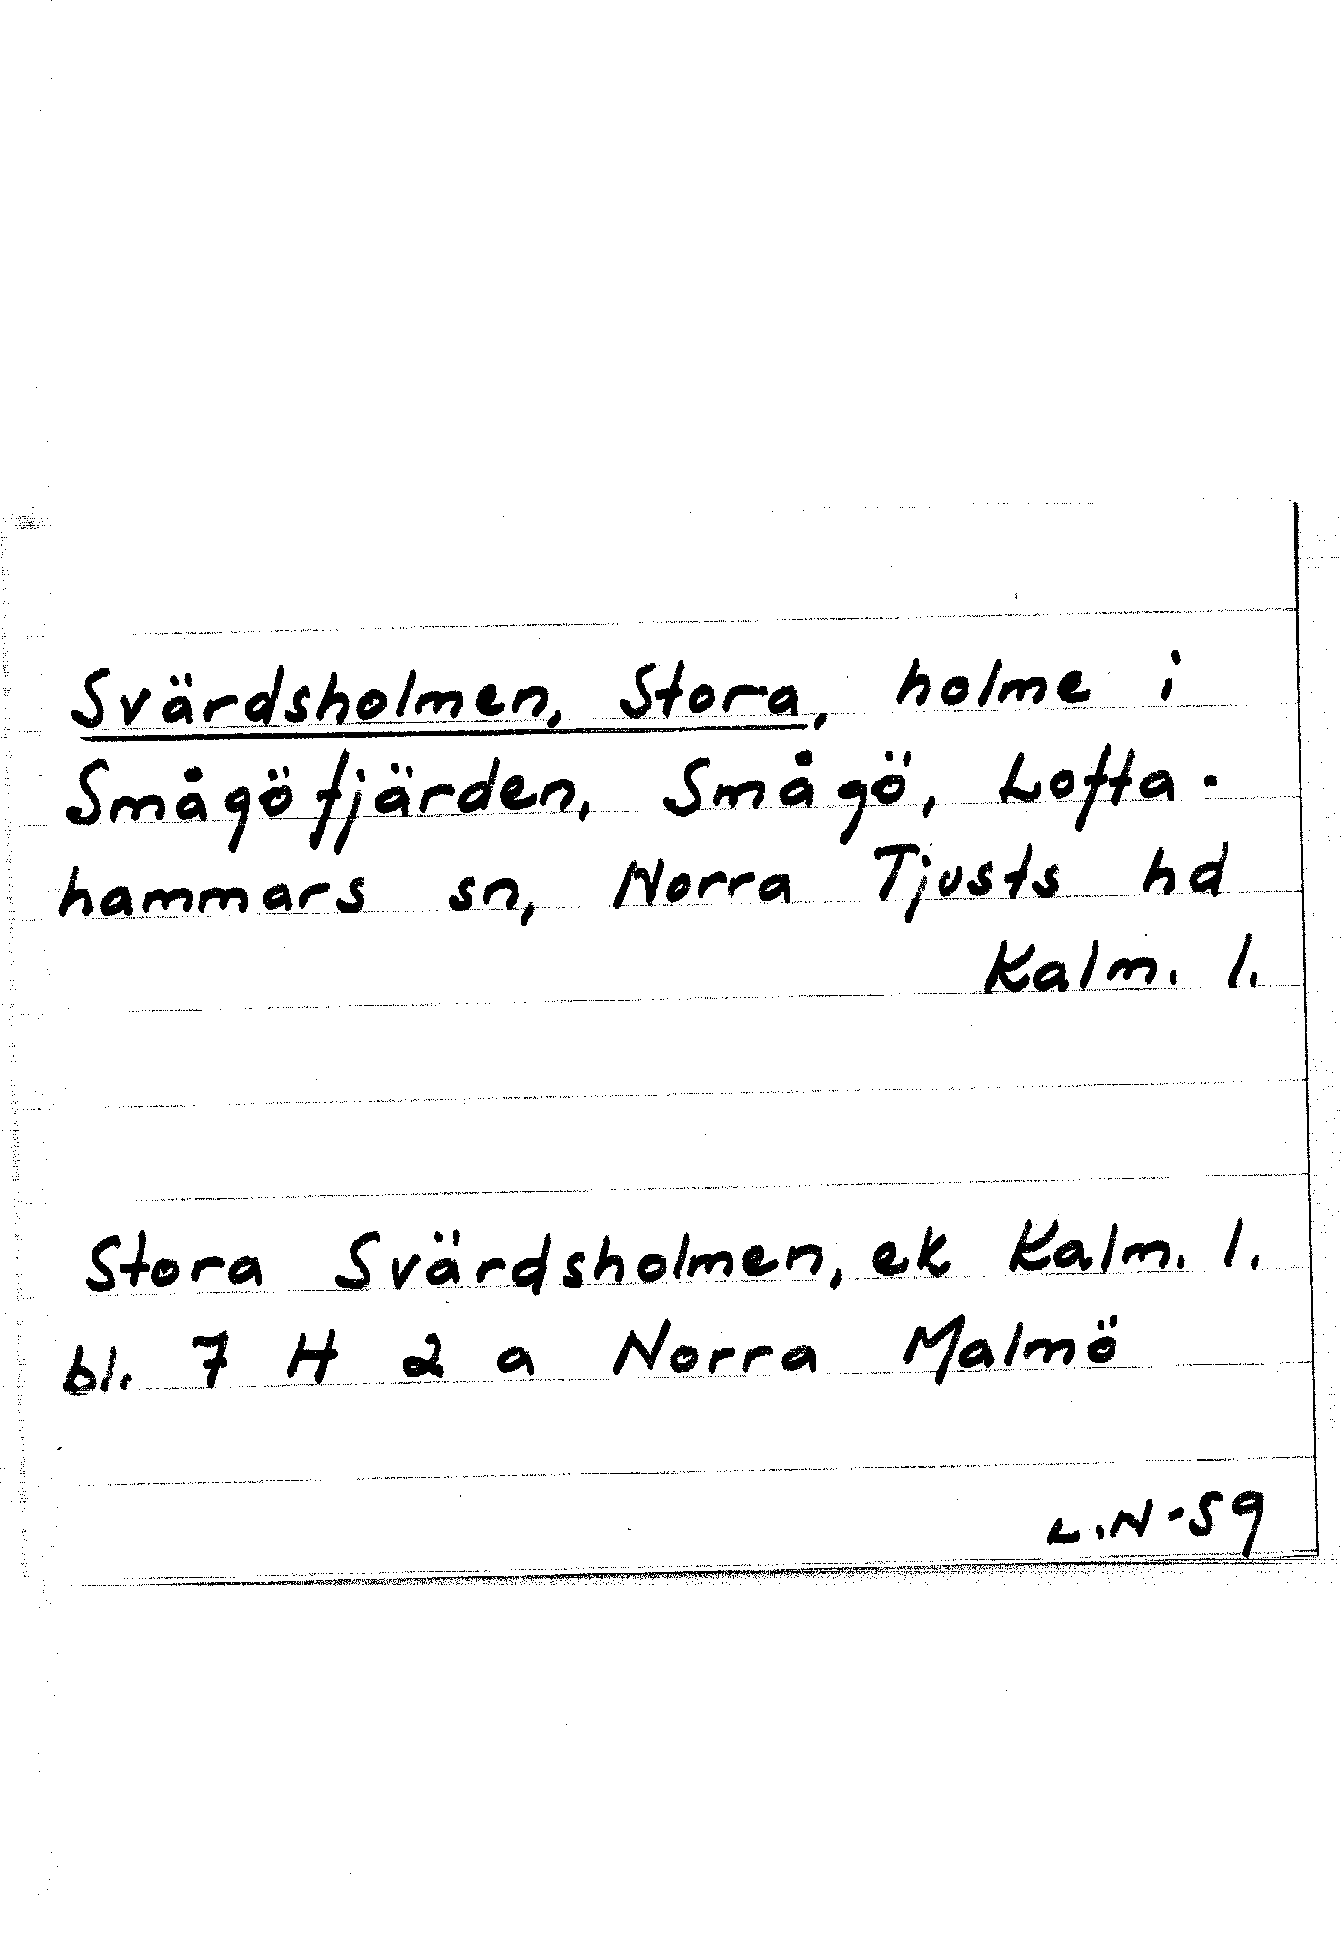 Svärdsholmen, Stora, holme i
Smågöfjärden, Smågö, Lofta-
hammars sn, Norra Tjusts hd
Kalm. l.
Stora Svärdsholmen, ek Kalm. l.
bl. 7 H 2 a Norra Malmö
L.N-59